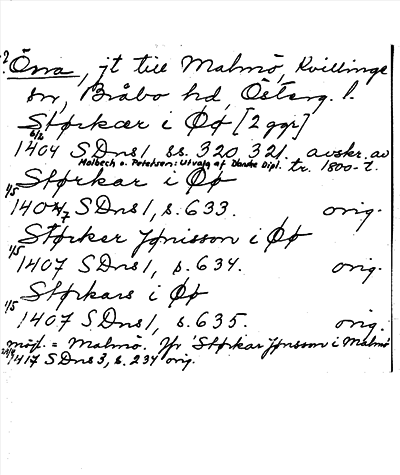 ? Öna, jt till Malmö, Kvillinge
sn, Bråbo hd, Österg. l.
Størkær i Øø [2 ggr]
6/2
1404 SDns1, ss. 320, 321. avskr. av
Molbech o. Petersen: Utvalg af Danske Dipl. tr. 1800-t.
Størkar i Øø
1/5
1407 SDns1, s. 633. orig.
Størker Jønisson i Øø
1/5
1407 SDns1, s. 634. orig.
Størkars i Øø
1/5
1407 SDns1, s. 635. orig.
möjl. = Malmö. Jfr 'Størkar Jønsson i Malmø'
1417 SDns3, s. 234 orig.